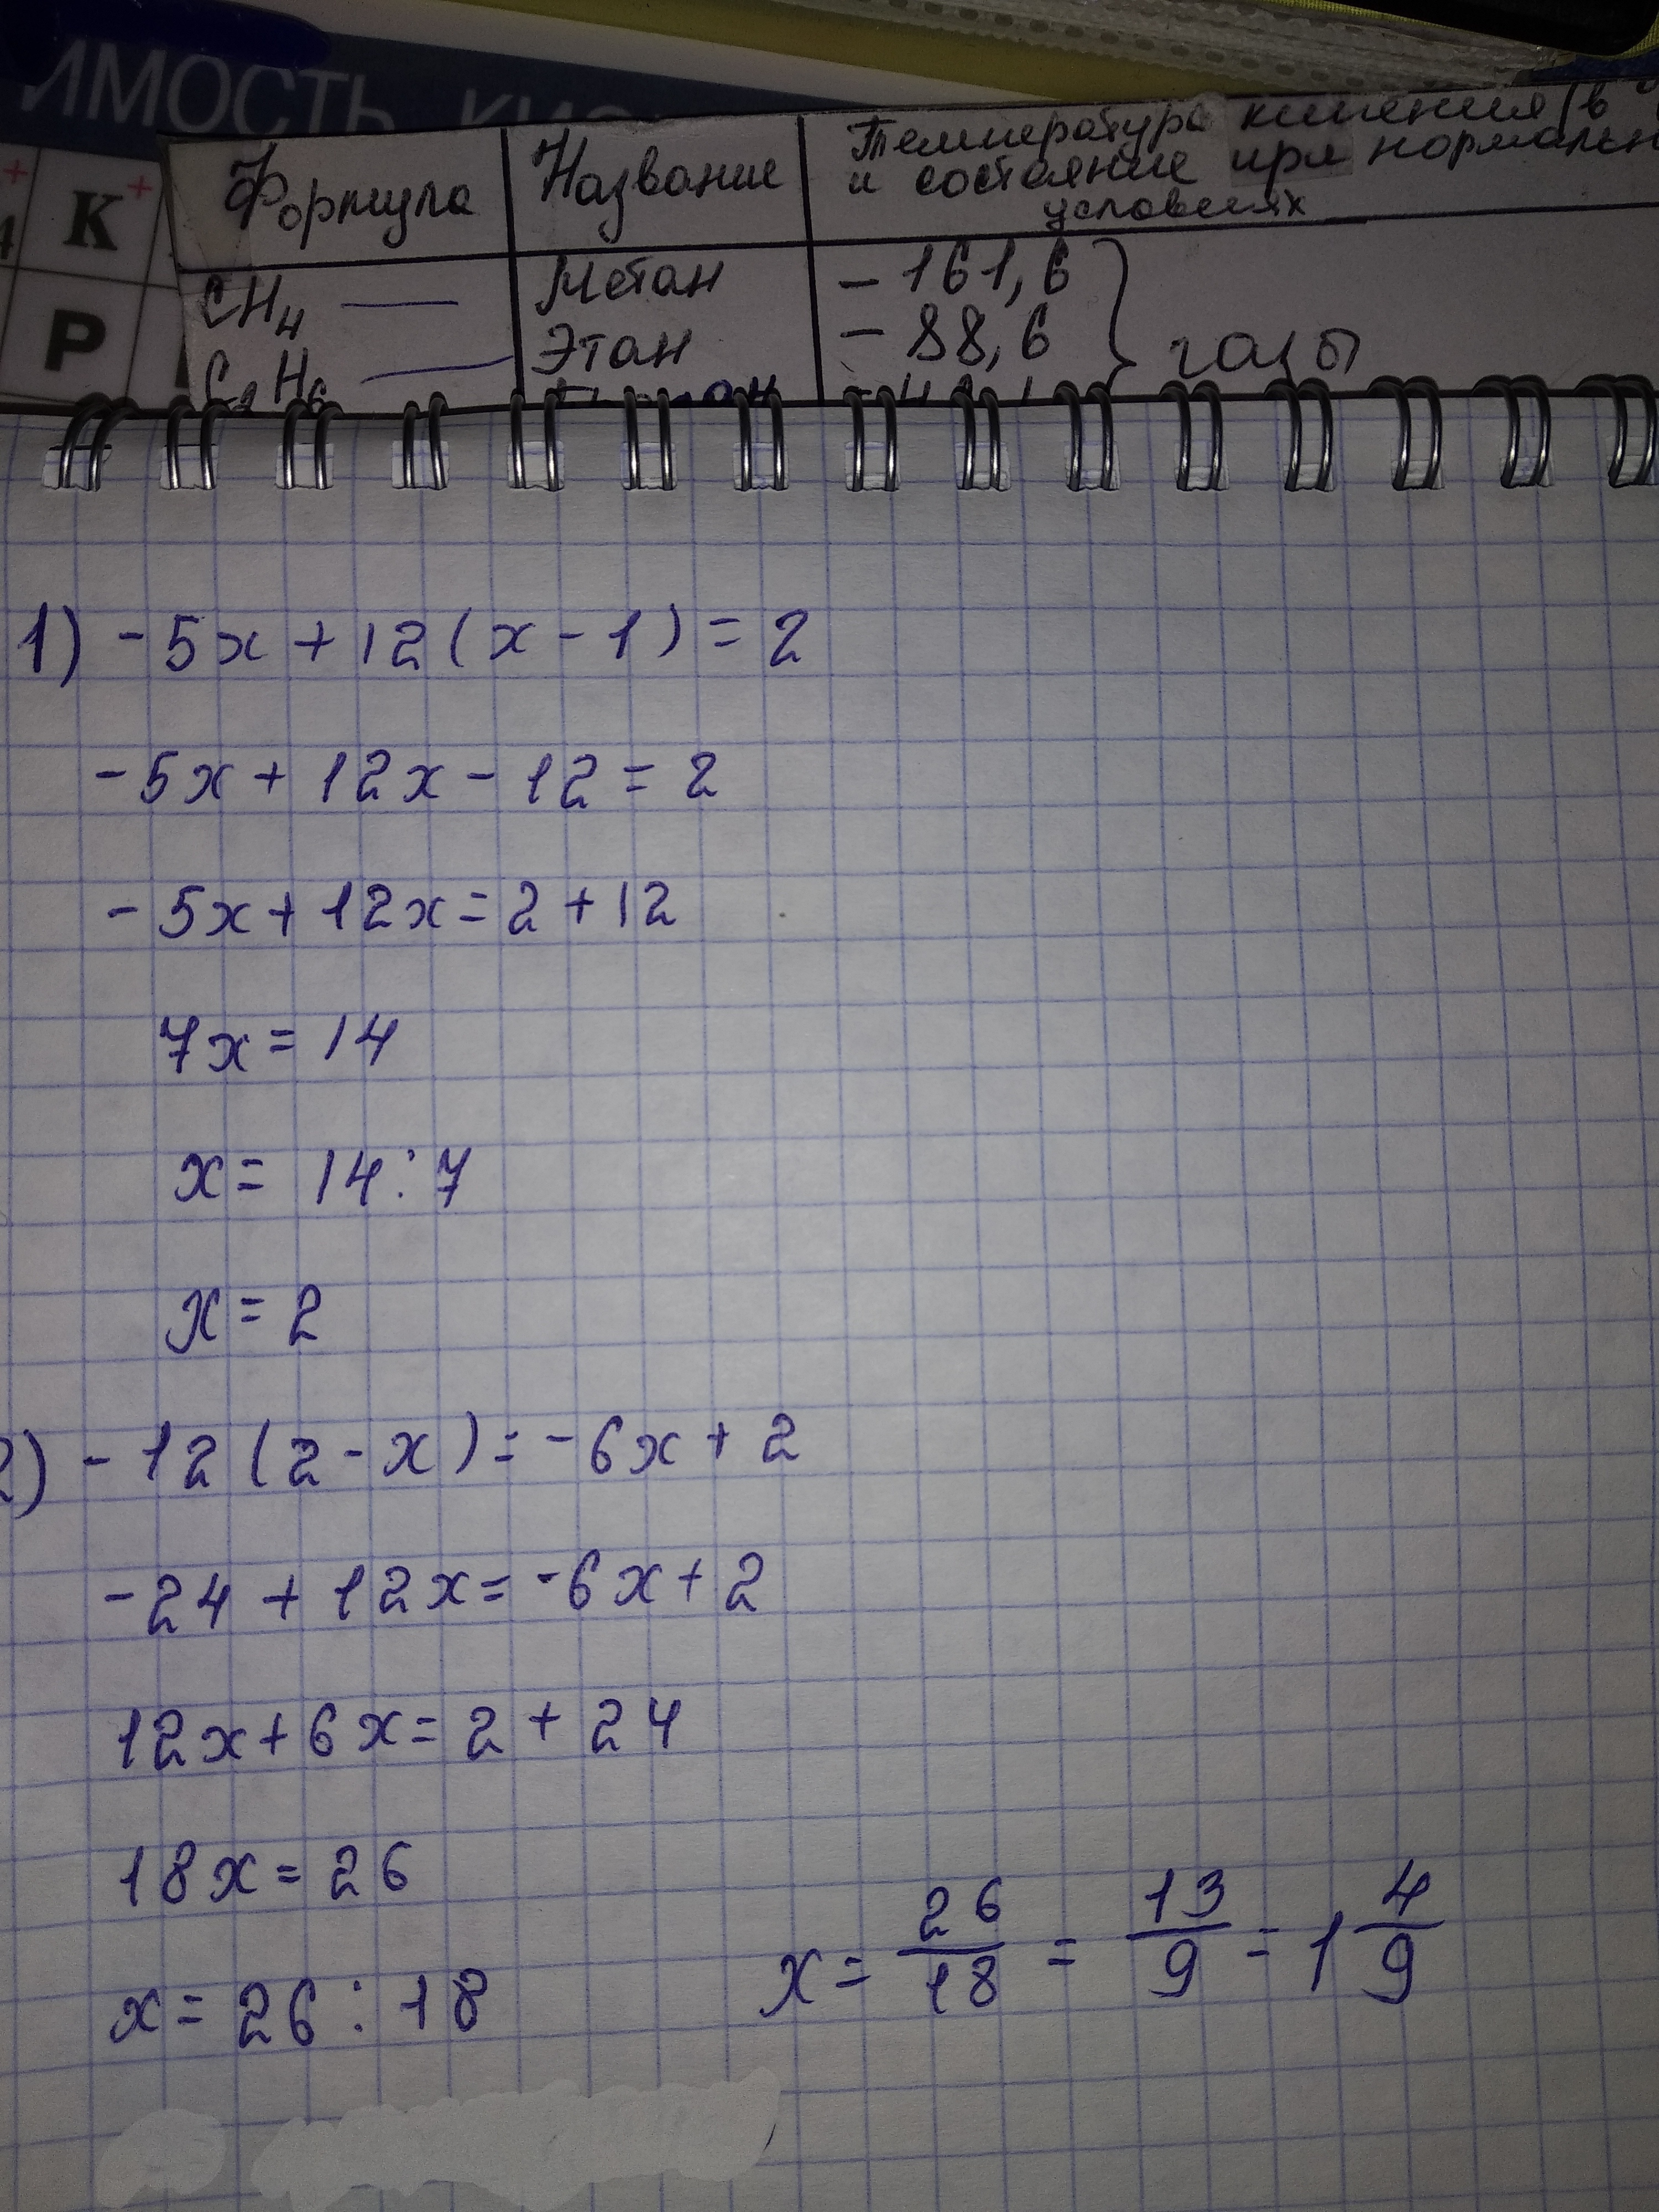 ИМОСТЬ
K+
P
Формула Название Температура кипения (в
и состояние при нормальн
условиях
CH4 — Метан - 161,6
C2H6 — Этан - 88,6 } газы
1) - 5x + 12 (x - 1) = 2
- 5x + 12x - 12 = 2
- 5x + 12x = 2 + 12
7x = 14
x = 14 : 7
x = 2
2) - 12 (2 - x) = - 6x + 2
- 24 + 12x = - 6x + 2
12x + 6x = 2 + 24
18x = 26
x = 26 : 18
x = 26/18 = 13/9 = 1 4/9